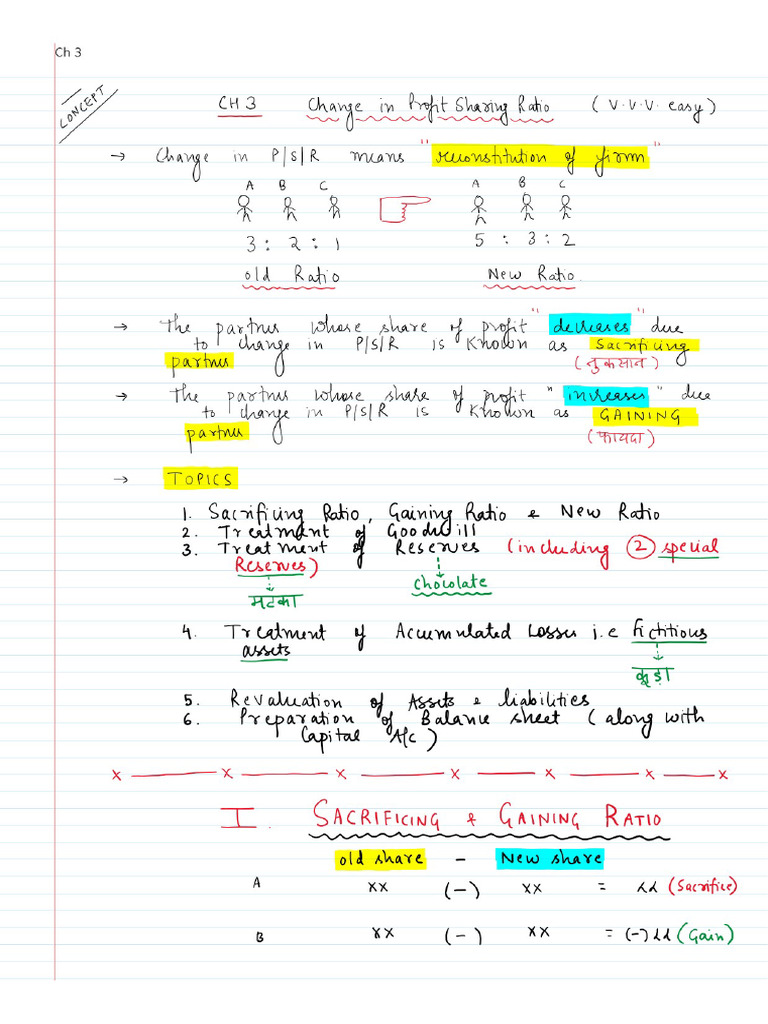 Ch 3
CONCEPT
CH 3 Change in Profit Sharing Ratio (V.V.V. easy)
→ Change in P/S/R means "reconstitution of firm"
A B C A B C
3 : 2 : 1 5 : 3 : 2
old Ratio New Ratio
→ The partner whose share of profit "decreases" due
to change in P/S/R is known as Sacrificing
partner (नुकसान)
→ The partner whose share of profit "increases" due
to change in P/S/R is known as GAINING
partner (फायदा)
→ TOPICS
1. Sacrificing Ratio, Gaining Ratio & New Ratio
2. Treatment of Goodwill
3. Treatment of Reserves (including 2 special
Reserves) chocolate
मटका
4. Treatment of Accumulated Losses i.e fictitious
assets
कूड़ा
5. Revaluation of Assets & liabilities
6. Preparation of Balance sheet (along with
Capital A/c)
x x x x x x x
I. SACRIFICING & GAINING RATIO
old share - New share
A xx (-) xx = (Sacrifice)
B xx (-) xx = (-) (Gain)